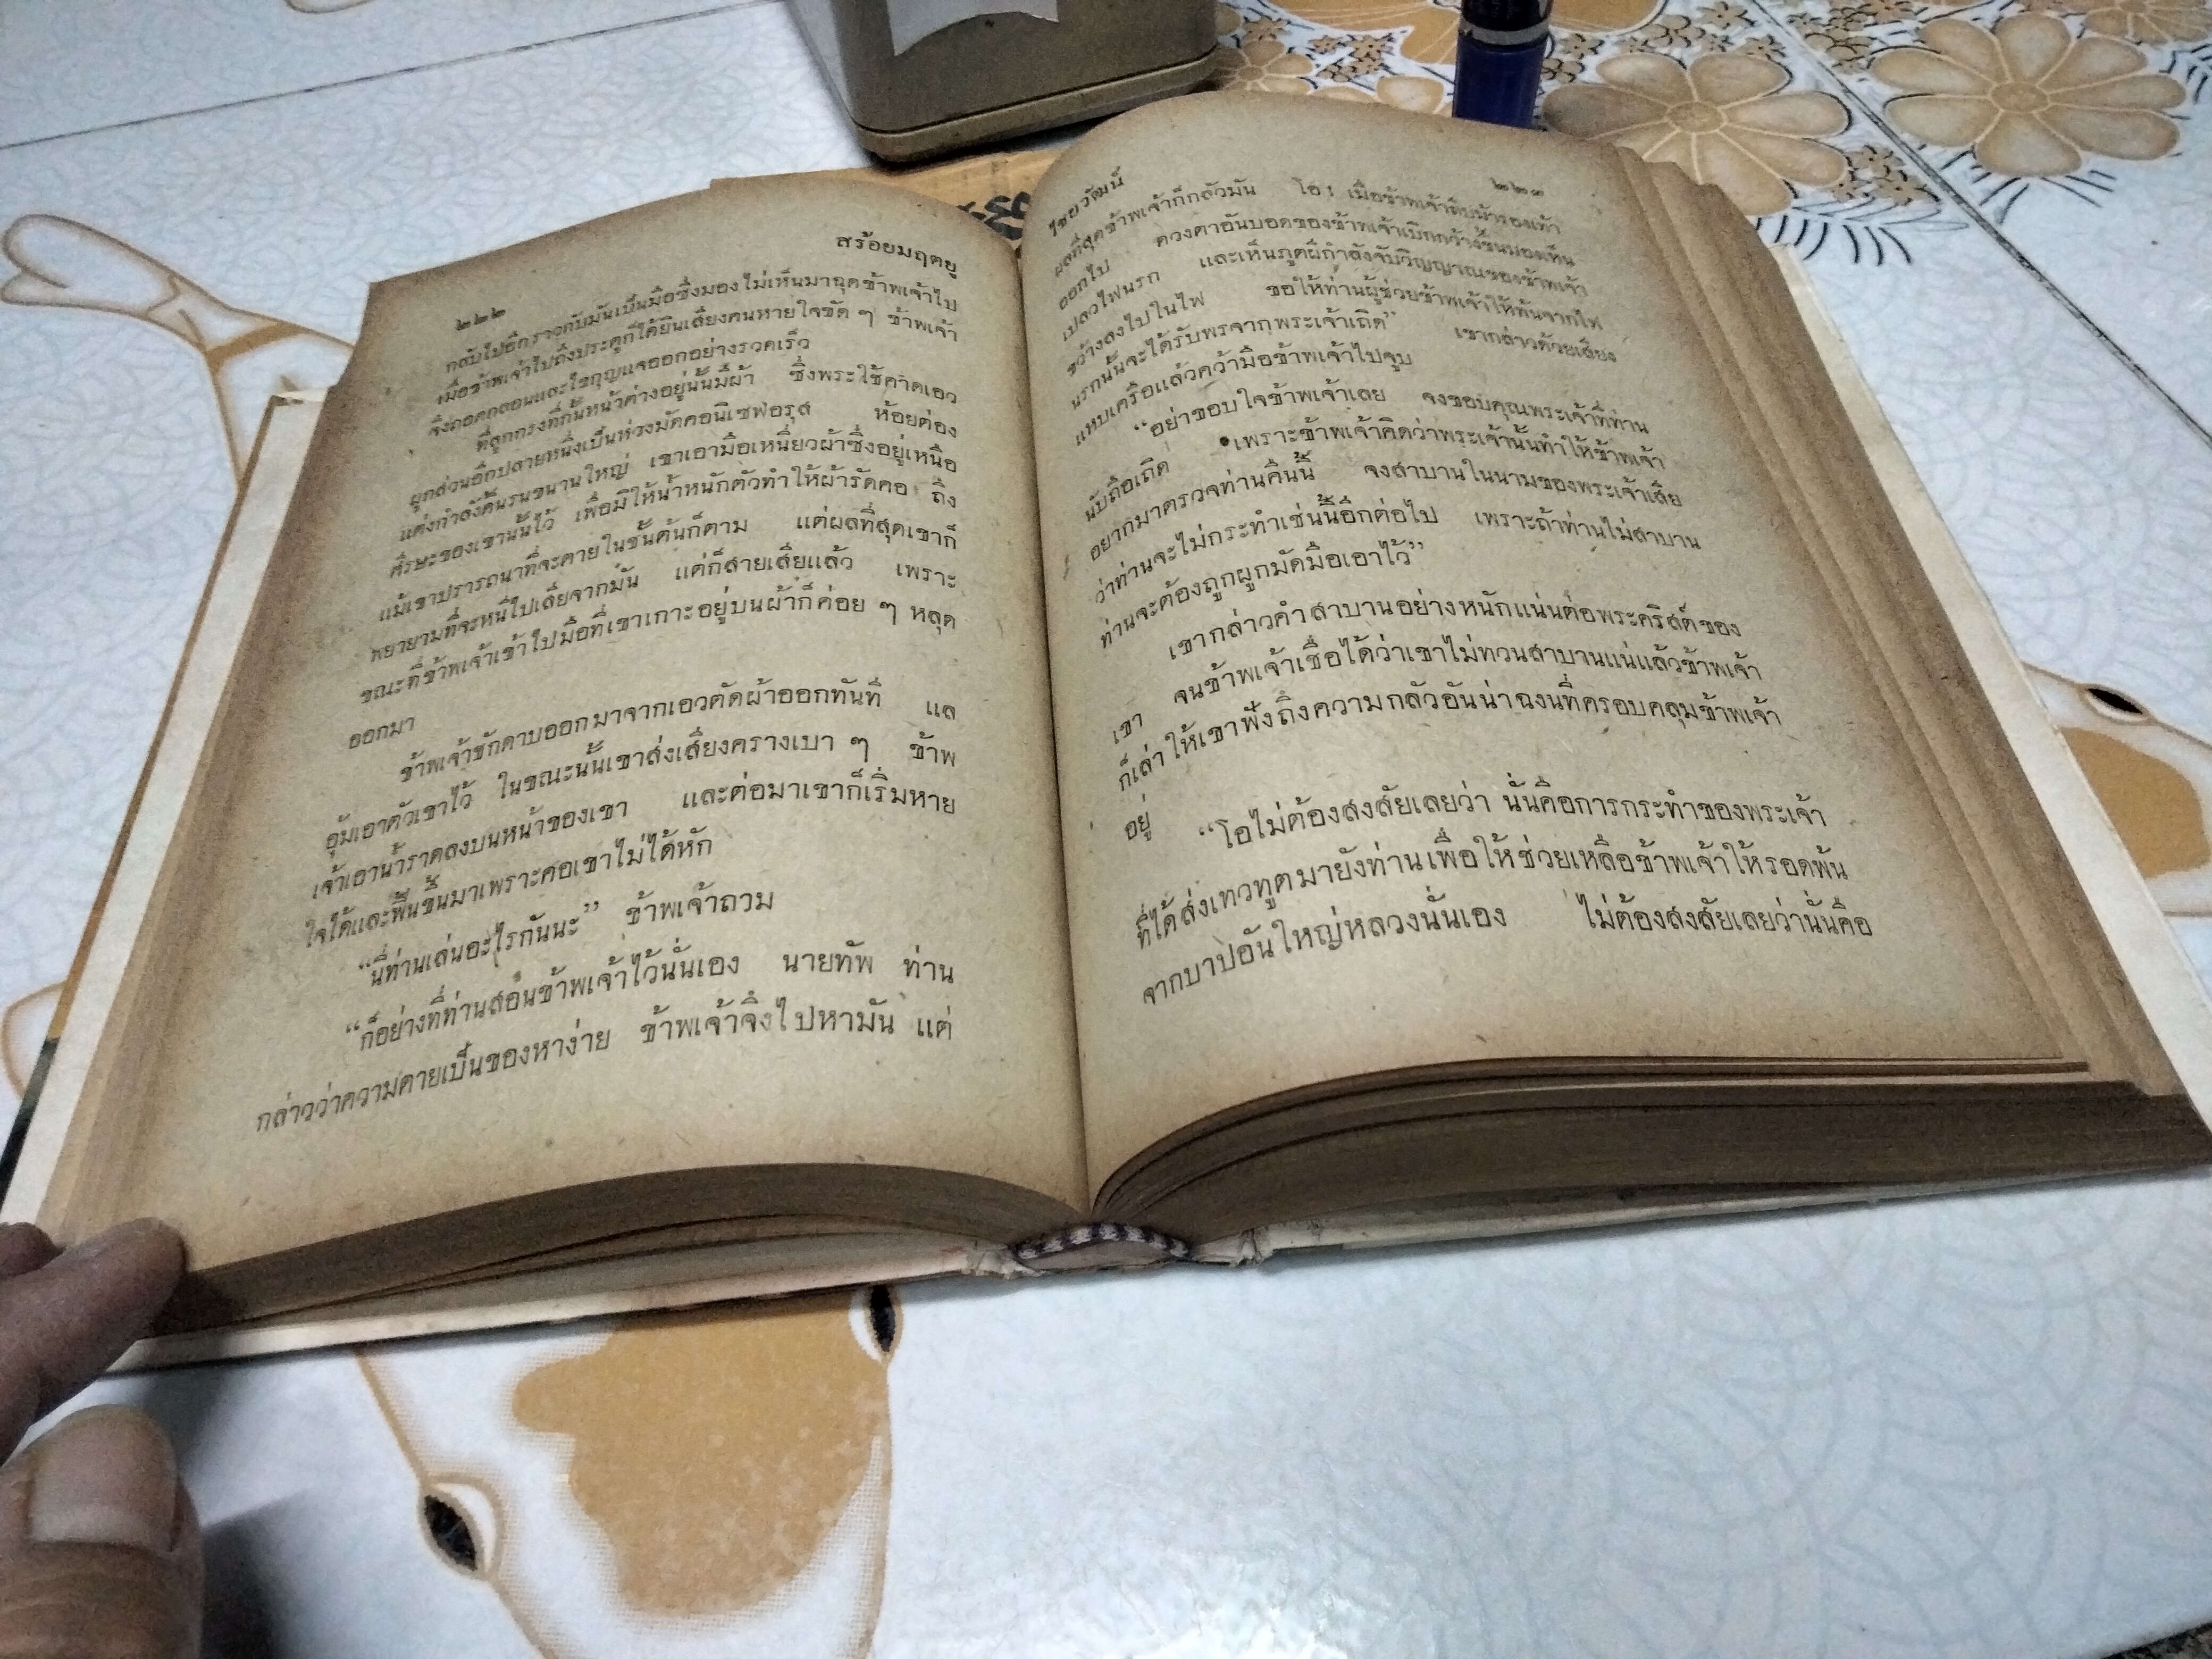 ๒๒๒
สร้อยมฤตยู
กลับไปอีกราวกับมันเป็นมือซึ่งมองไม่เห็นมาฉุดข้าพเจ้าไป
เมื่อข้าพเจ้าไปถึงประตูก็ได้ยินเสียงคนหายใจขัด ๆ ข้าพเจ้า
จึงถอดกลอนและไขกุญแจออกอย่างรวดเร็ว
ที่ลูกกรงที่กั้นหน้าต่างอยู่นั้นมีผ้า ซึ่งพระใช้คาดเอว
ผูกส่วนอีกปลายหนึ่งเป็นห่วงมัดคอนิเซฟอรุส ห้อยต่อง
แต่งกำลังดิ้นรนขนานใหญ่ เขาเอามือเหนี่ยวผ้าซึ่งอยู่เหนือ
ศีรษะของเขานั้นไว้ เพื่อมิให้น้ำหนักตัวทำให้ผ้ารัดคอ ถึง
แม้เขาปรารถนาที่จะตายในชั้นต้นก็ตาม แต่ผลที่สุดเขาก็
พยายามที่จะหนีไปเสียจากมัน แต่ก็สายเสียแล้ว เพราะ
ขณะที่ข้าพเจ้าเข้าไปมือที่เขาเกาะอยู่บนผ้าก็ค่อย ๆ หลุด
ออกมา
ข้าพเจ้าชักดาบออกมาจากเอวตัดผ้าออกทันที แล
อุ้มเอาตัวเขาไว้ ในขณะนั้นเขาส่งเสียงครางเบา ๆ ข้าพ
เจ้าเอาน้ำราดลงบนหน้าของเขา และต่อมาเขาก็เริ่มหาย
ใจได้และฟื้นขึ้นมาเพราะคอเขาไม่ได้หัก
“นี่ท่านเล่นอะไรกันนะ” ข้าพเจ้าถวม
“ก็อย่างที่ท่านสอนข้าพเจ้าไว้นั่นเอง นายทัพ ท่าน
กล่าวว่าความตายเป็นของหาง่าย ข้าพเจ้าจึงไปหามัน แต่
ไชยวัฒน์
๒๒๓
ผลที่สุดข้าพเจ้าก็กลัวมัน โอ! เมื่อข้าพเจ้าถีบม้ารองเท้า
ออกไป ดวงตาอันบอดของข้าพเจ้าเบิกกว้างขึ้นมองเห็น
เปลวไฟนรก และเห็นภูตผีกำลังจับวิญญาณของข้าพเจ้า
ขว้างลงไปในไฟ ขอให้ท่านผู้ช่วยข้าพเจ้าให้พ้นจากไฟ
นรกนั้นจะได้รับพรจากพระเจ้าเถิด” เขากล่าวด้วยเสียง
แหบเครือแล้วคว้ามือข้าพเจ้าไปจูบ
“อย่าขอบใจข้าพเจ้าเลย จงขอบคุณพระเจ้าที่ท่าน
นับถือเถิด เพราะข้าพเจ้าคิดว่าพระเจ้านั้นทำให้ข้าพเจ้า
อยากมาตรวจท่านคืนนี้ จงสาบานในนามของพระเจ้าเสีย
ว่าท่านจะไม่กระทำเช่นนี้อีกต่อไป เพราะถ้าท่านไม่สาบาน
ท่านจะต้องถูกผูกมัดมือเอาไว้”
เขากล่าวคำสาบานอย่างหนักแน่นต่อพระคริสต์ของ
เขา จนข้าพเจ้าเชื่อได้ว่าเขาไม่ทวนสาบานแน่แล้วข้าพเจ้า
ก็เล่าให้เขาฟังถึงความกลัวอันน่าฉงนที่ครอบคลุมข้าพเจ้า
อยู่
“โอไม่ต้องสงสัยเลยว่า นั่นคือการกระทำของพระเจ้า
ที่ได้ส่งเทวทูตมายังท่านเพื่อให้ช่วยเหลือข้าพเจ้าให้รอดพ้น
จากบาปอันใหญ่หลวงนั่นเอง ไม่ต้องสงสัยเลยว่านั่นคือ